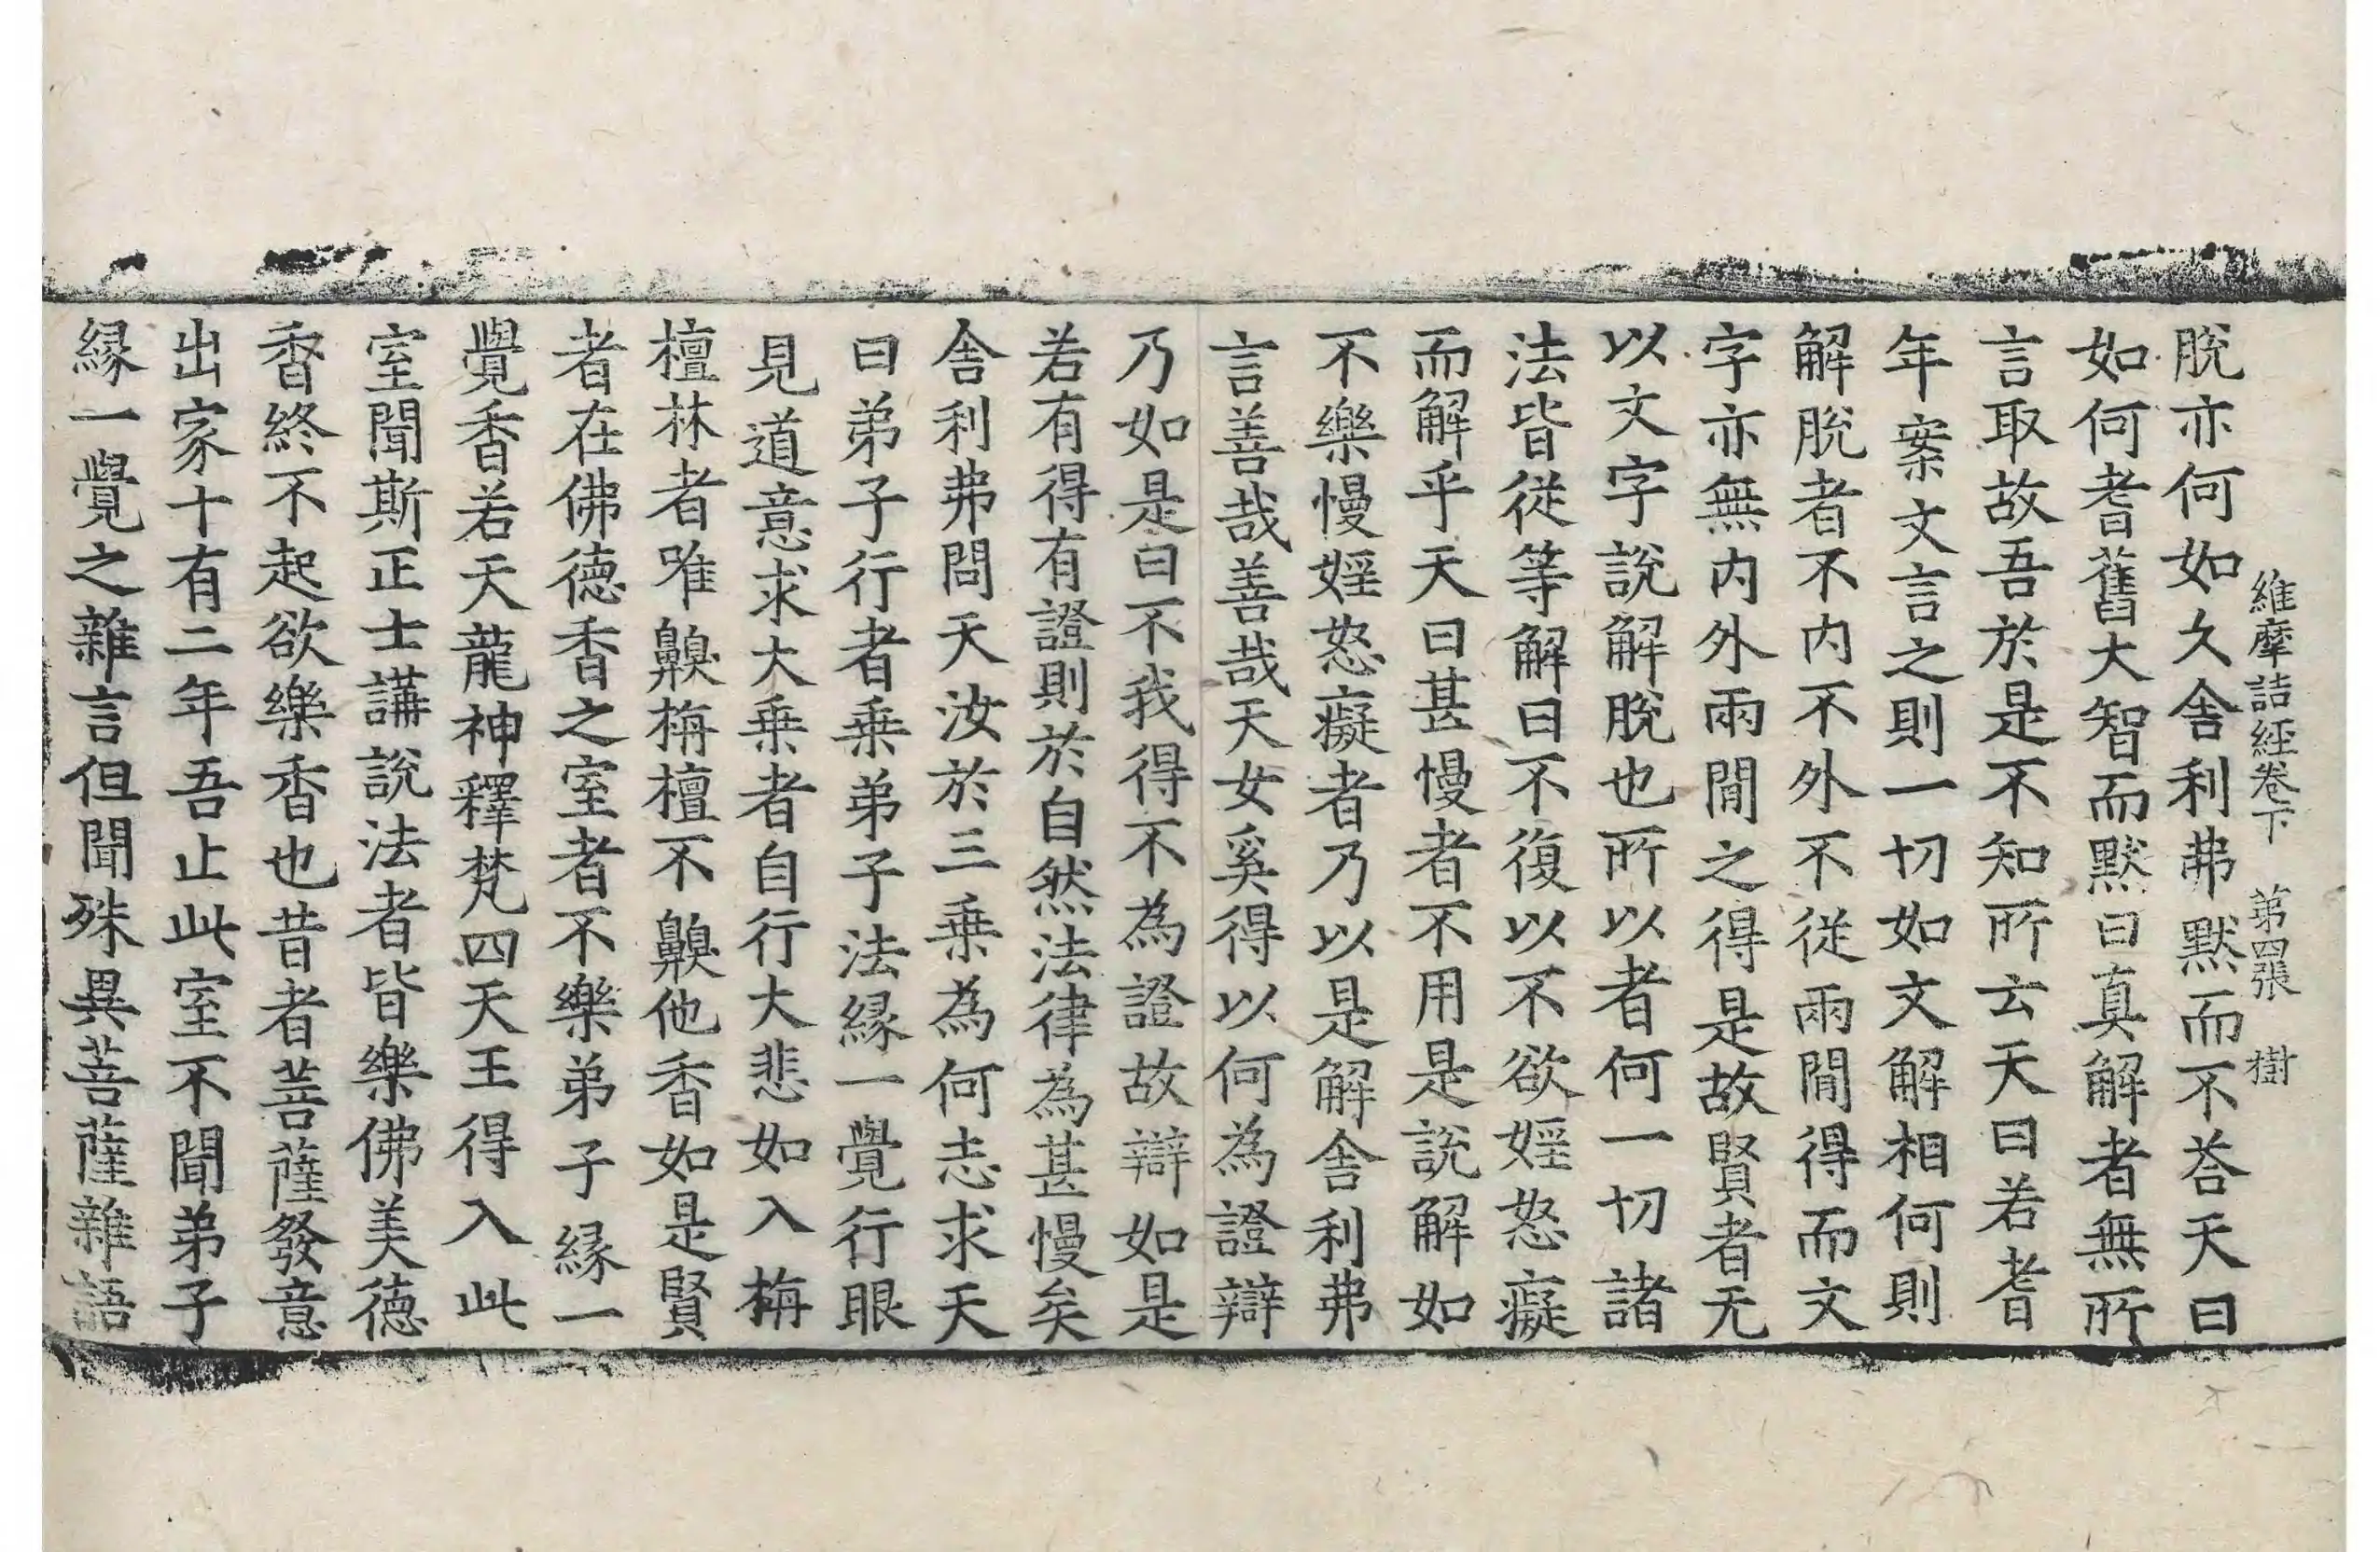 維摩詰經卷下 第四張 樹
脫亦何如久舍利弗黙而不荅天曰
如何耆舊大智而黙曰真解者無所
言取故吾於是不知所云天曰若耆
年案文言之則一切如文解相何則
解脫者不内不外不從兩閒得而文
字亦無内外兩閒之得是故賢者无
以文字說解脫也所以者何一切諸
法皆從等解曰不復以不欲婬怒癡
而解乎天曰甚慢者不用是說解如
不樂慢婬怒癡者乃以是解舍利弗
言善哉善哉天女奚得以何為證辯
乃如是曰不我得不為證故辯如是
若有得有證則於自然法律為甚慢矣
舍利弗問天汝於三乗為何志求天
曰弟子行者乗弟子法縁一覺行眼
見道意求大乗者自行大悲如入栴
檀林者唯齅栴檀不齅他香如是賢
者在佛德香之室者不樂弟子縁一
覺香若天龍神釋梵四天王得入此
室聞斯正士講說法者皆樂佛美德
香終不起欲樂香也昔者菩薩發意
出家十有二年吾止此室不聞弟子
縁一覺之雜言但聞殊異菩薩雜語